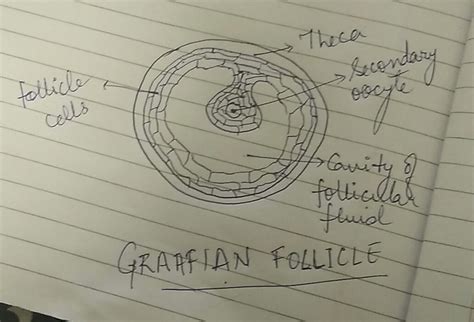 Theca
Secondary
oocyte
follicle
cells
Cavity of
follicular
fluid
GRAAFIAN FOLLICLE